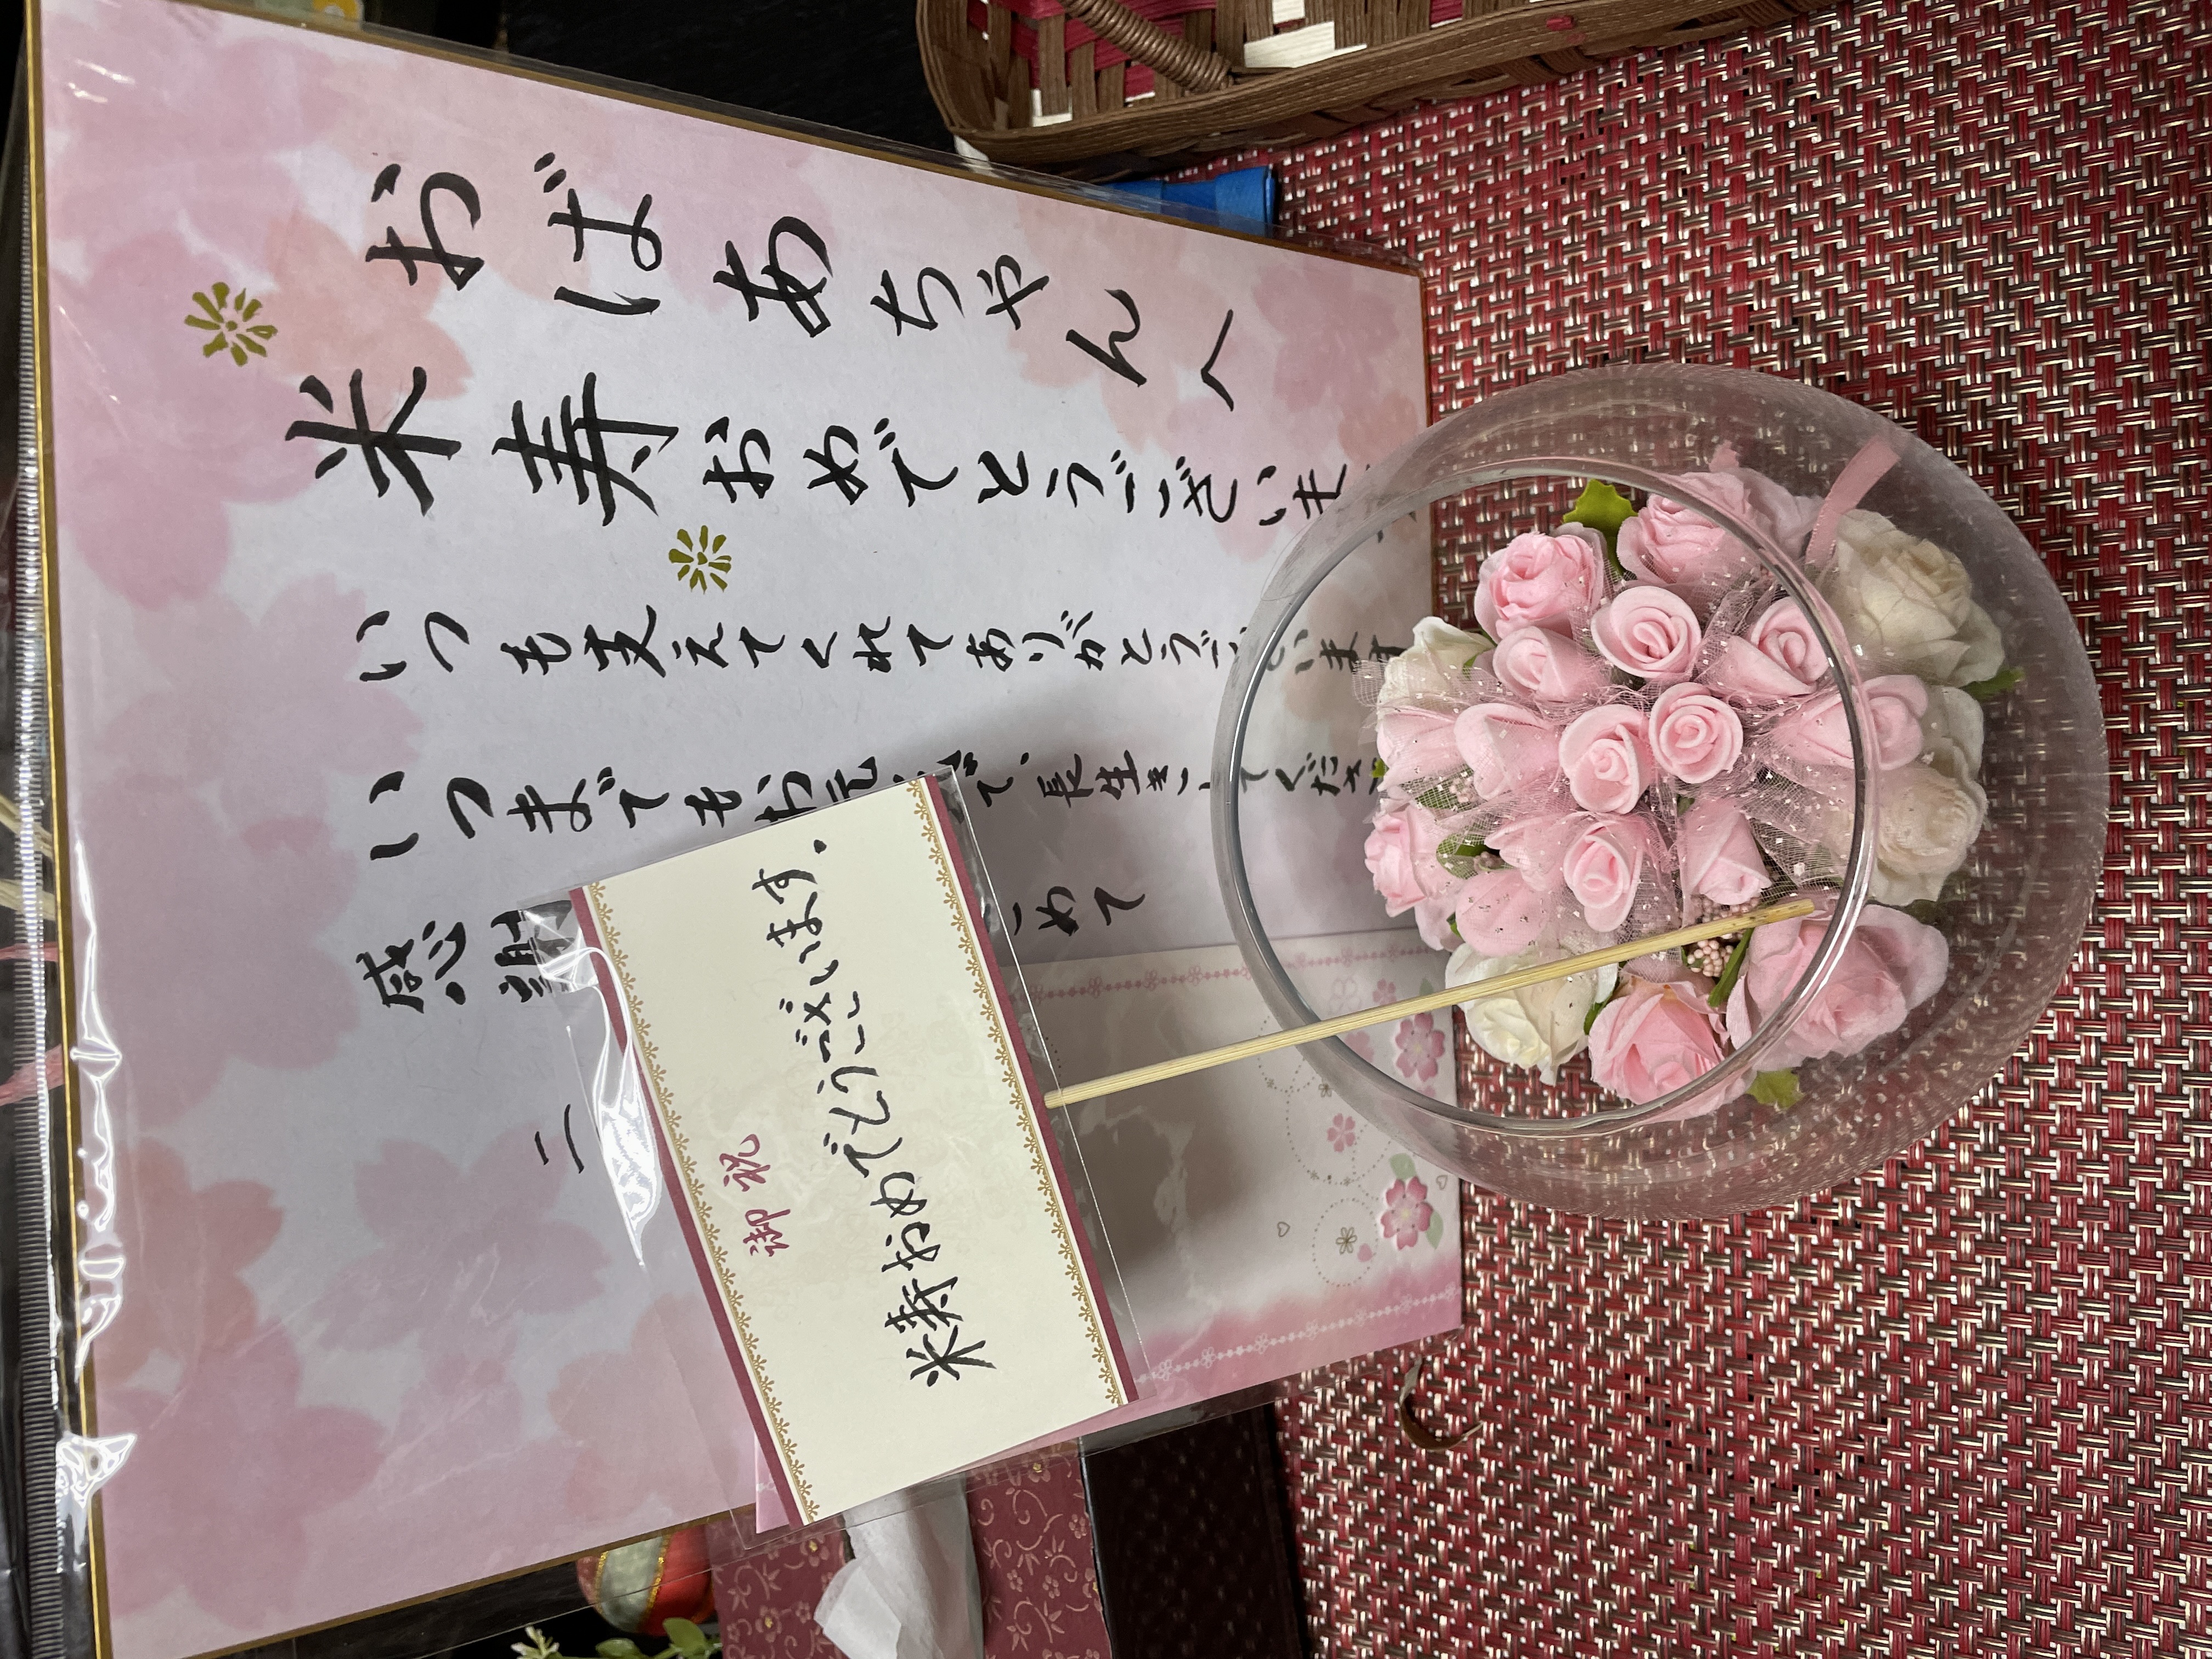 おばあちゃんへ
米寿おめでとうございま
いつも支えてくれてありがとうございます
いつまでもお元気で、長生きしてくださ
感謝
こめて
二
御祝
米寿おめでとうございます。